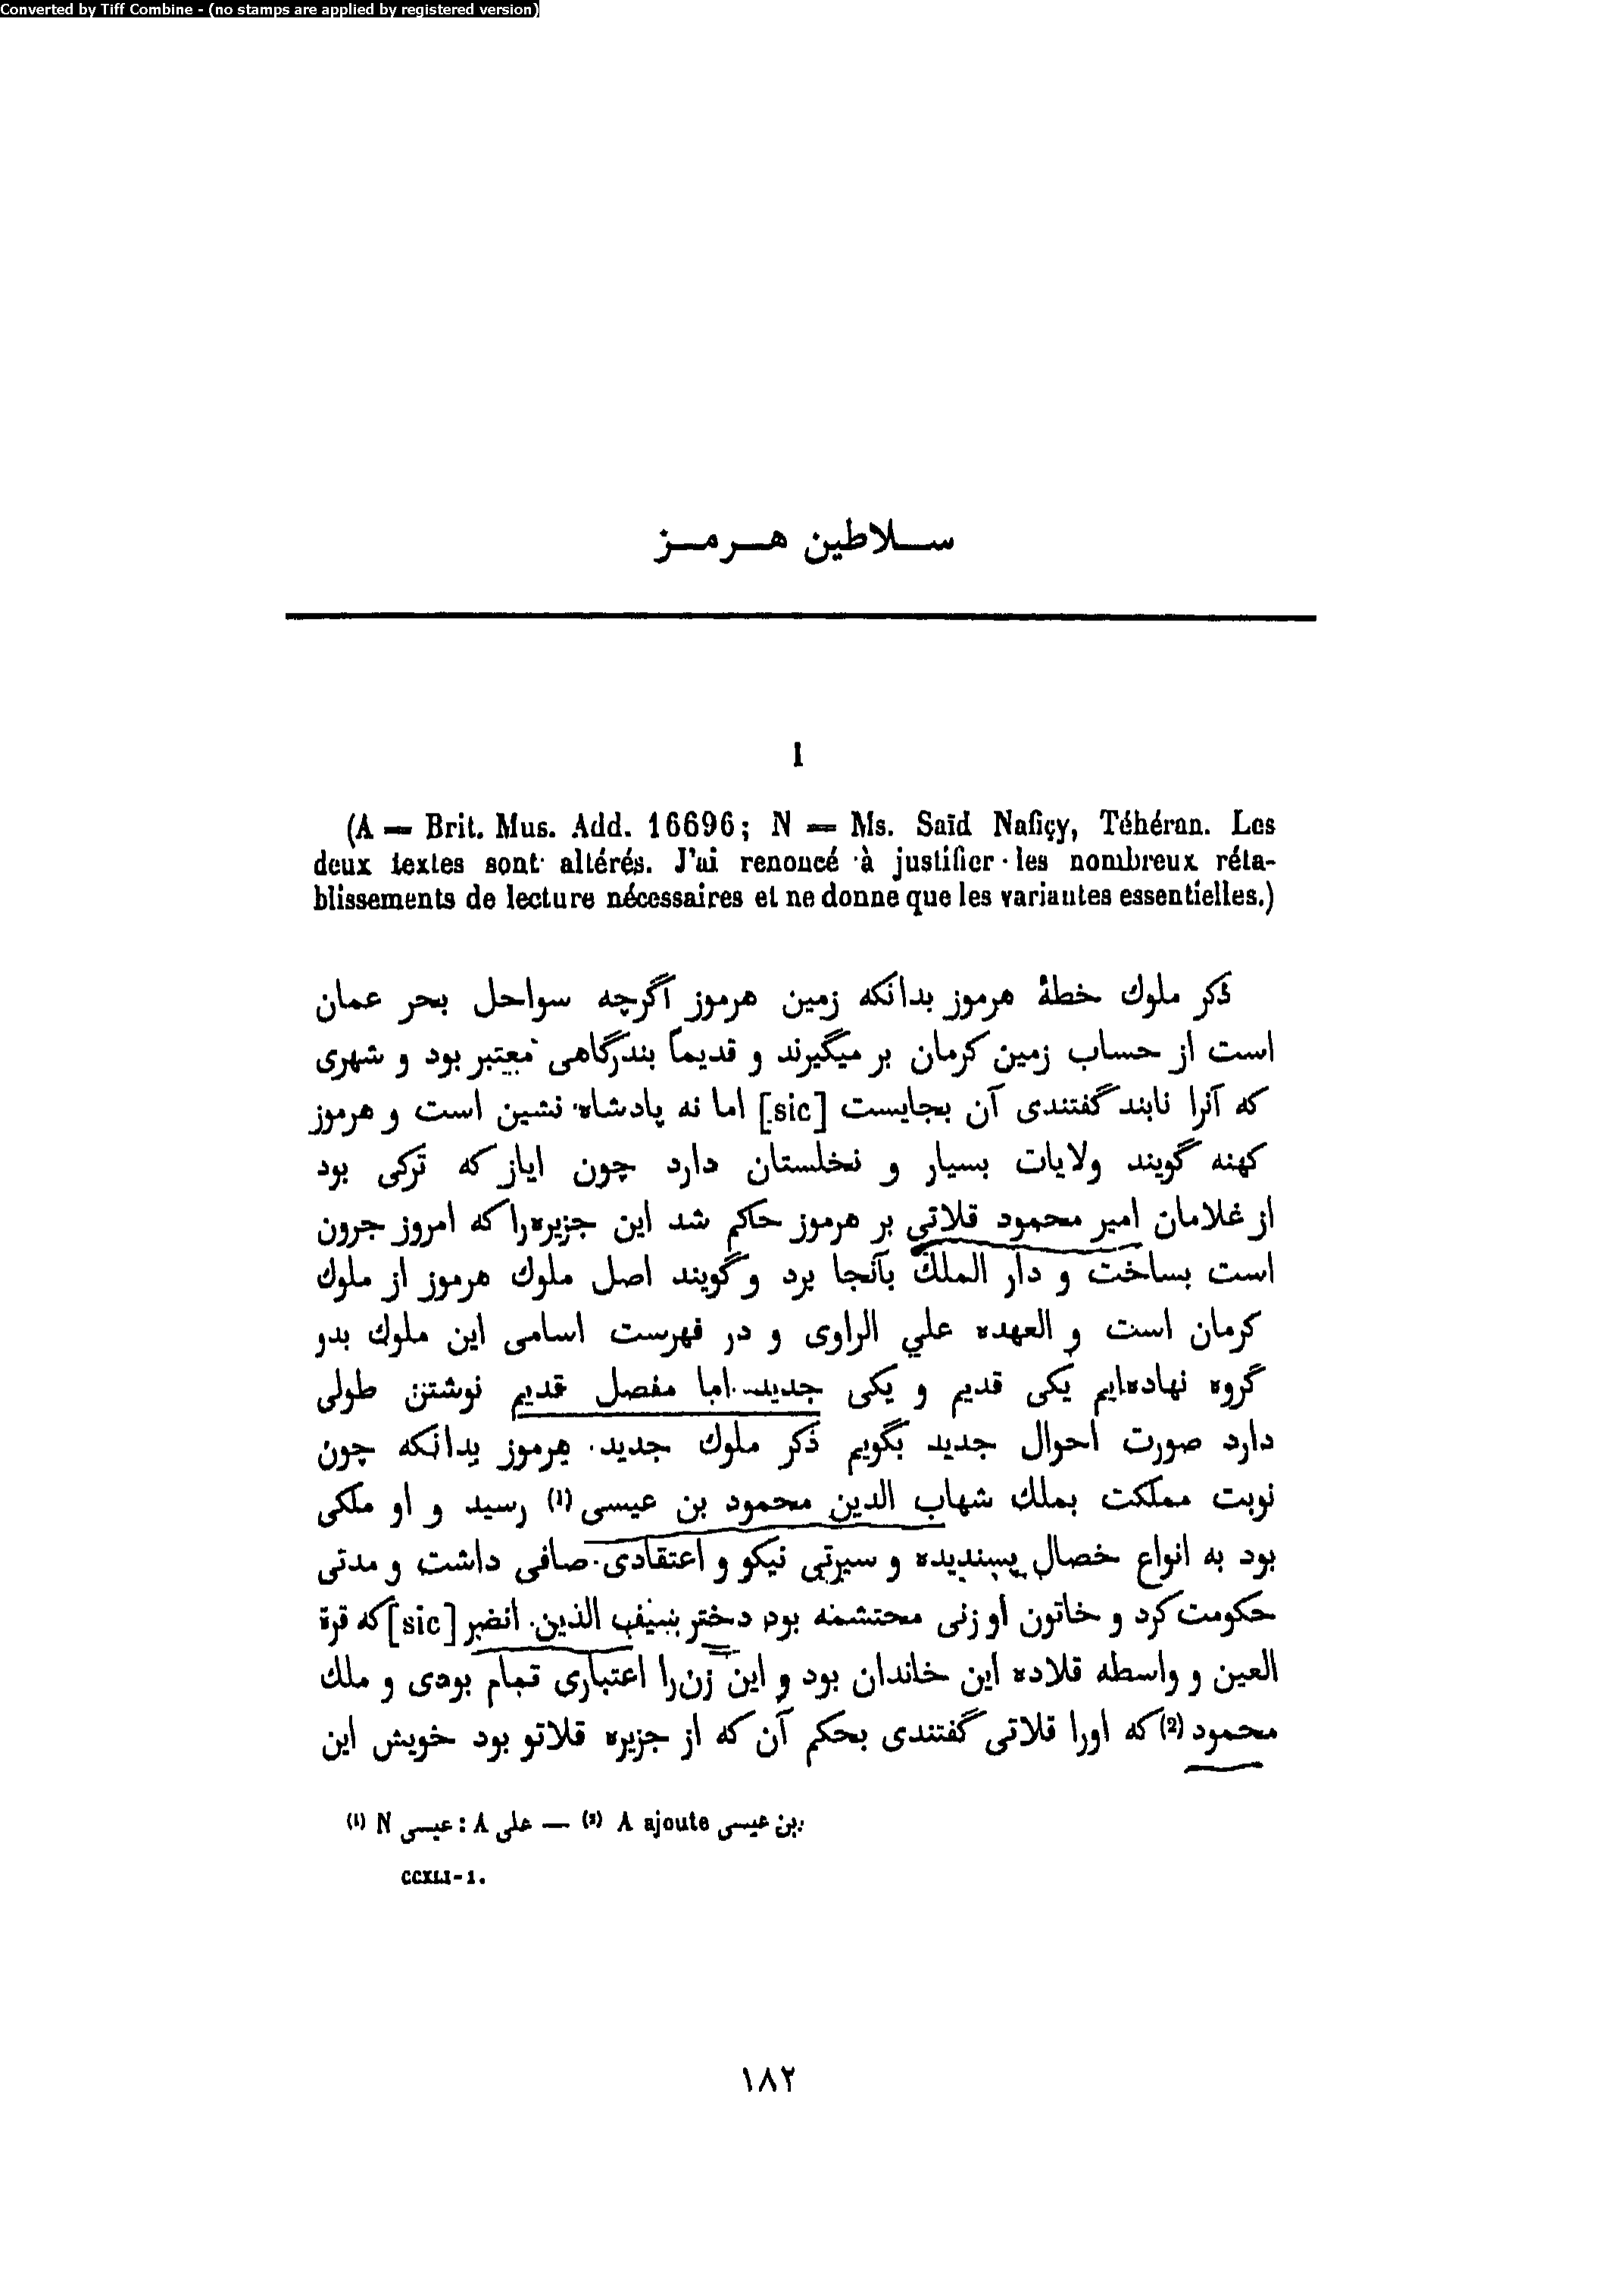 Converted by Tiff Combine - (no stamps are applied by registered version)
سلاطین هرمز
I
(A = Brit. Mus. Add. 16696; N = Ms. Saïd Nafiçy, Téhéran. Les
deux textes sont altérés. J'ai renoncé à justifier les nombreux réta-
blissements de lecture nécessaires et ne donne que les variantes essentielles.)
ذکر ملوك خطۀ هرموز بدانکه زمین هرموز اگرچه سواحل بحر عمان
است از حساب زمین کرمان بر میگیرند و قدیماً بندرگاهی معتبر بود و شهری
که آنرا نابند گفتندی آن بجایست [sic] اما نه پادشاه نشین است و هرموز
کهنه گویند ولایات بسیار و نخلستان دارد چون ایاز که ترکی بود
از غلامان امیر محمود قلاتی بر هرموز حاکم شد این جزیره‌را که امروز جرون
است بساخت و دار الملك بآنجا برد و گویند اصل ملوك هرموز از ملوك
کرمان است و العهده علي الراوی و در فهرست اسامی این ملوك بدو
گروه نهاده‌ایم یکی قدیم و یکی جدید اما مفصل قدیم نوشتن طولی
دارد صورت احوال جدید بگویم ذکر ملوك جدید هرموز بدانکه چون
نوبت مملکت بملك شهاب الدین محمود بن عیسی (1) رسید و او ملکی
بود به انواع خصال پسندیده و سیرتی نیکو و اعتقادی صافی داشت و مدتی
حکومت کرد و خاتون او زنی محتشمه بود دختر سیف الدین انضر [sic] که قرة
العین و واسطه قلاده این خاندان بود و این زن‌را اعتباری تمام بودی و ملك
محمود (2) که اورا قلاتی گفتندی بحکم آن که از جزیره قلاتو بود خویش این
(1) N عیسی : A علی — (2) A ajoute بن عیسی.
CCXLI-1.
١٨٢